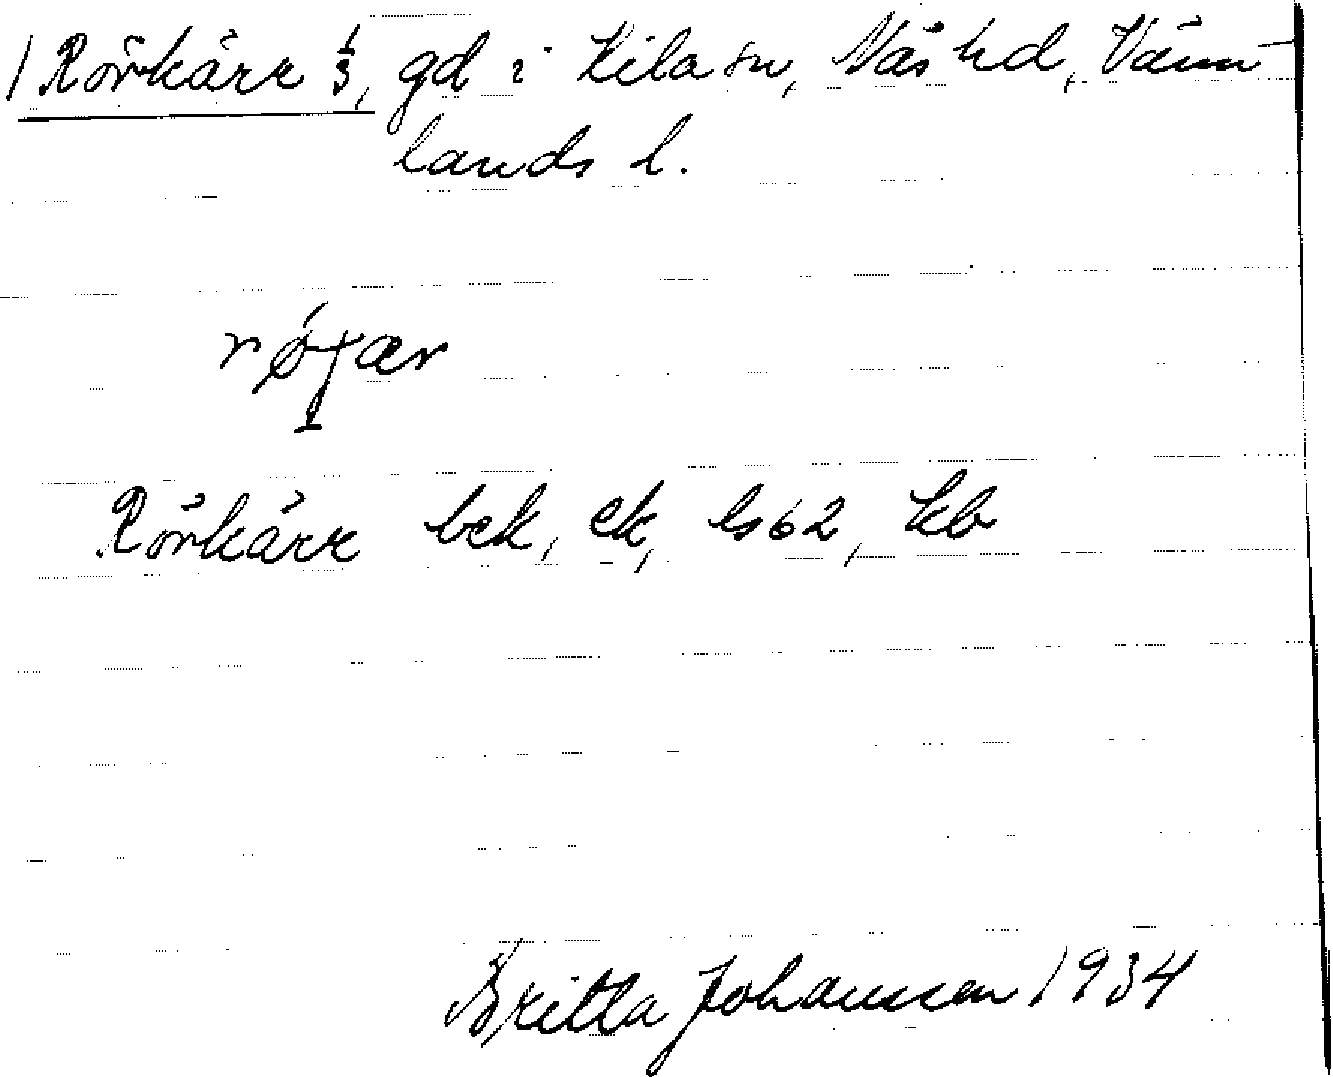 1 Rörkärr 1/3, gd i Kila sn, Näs hd, Värm-
lands l.
Rörkärr bek, ek, ls 62, kb
Britta Johansson 1934